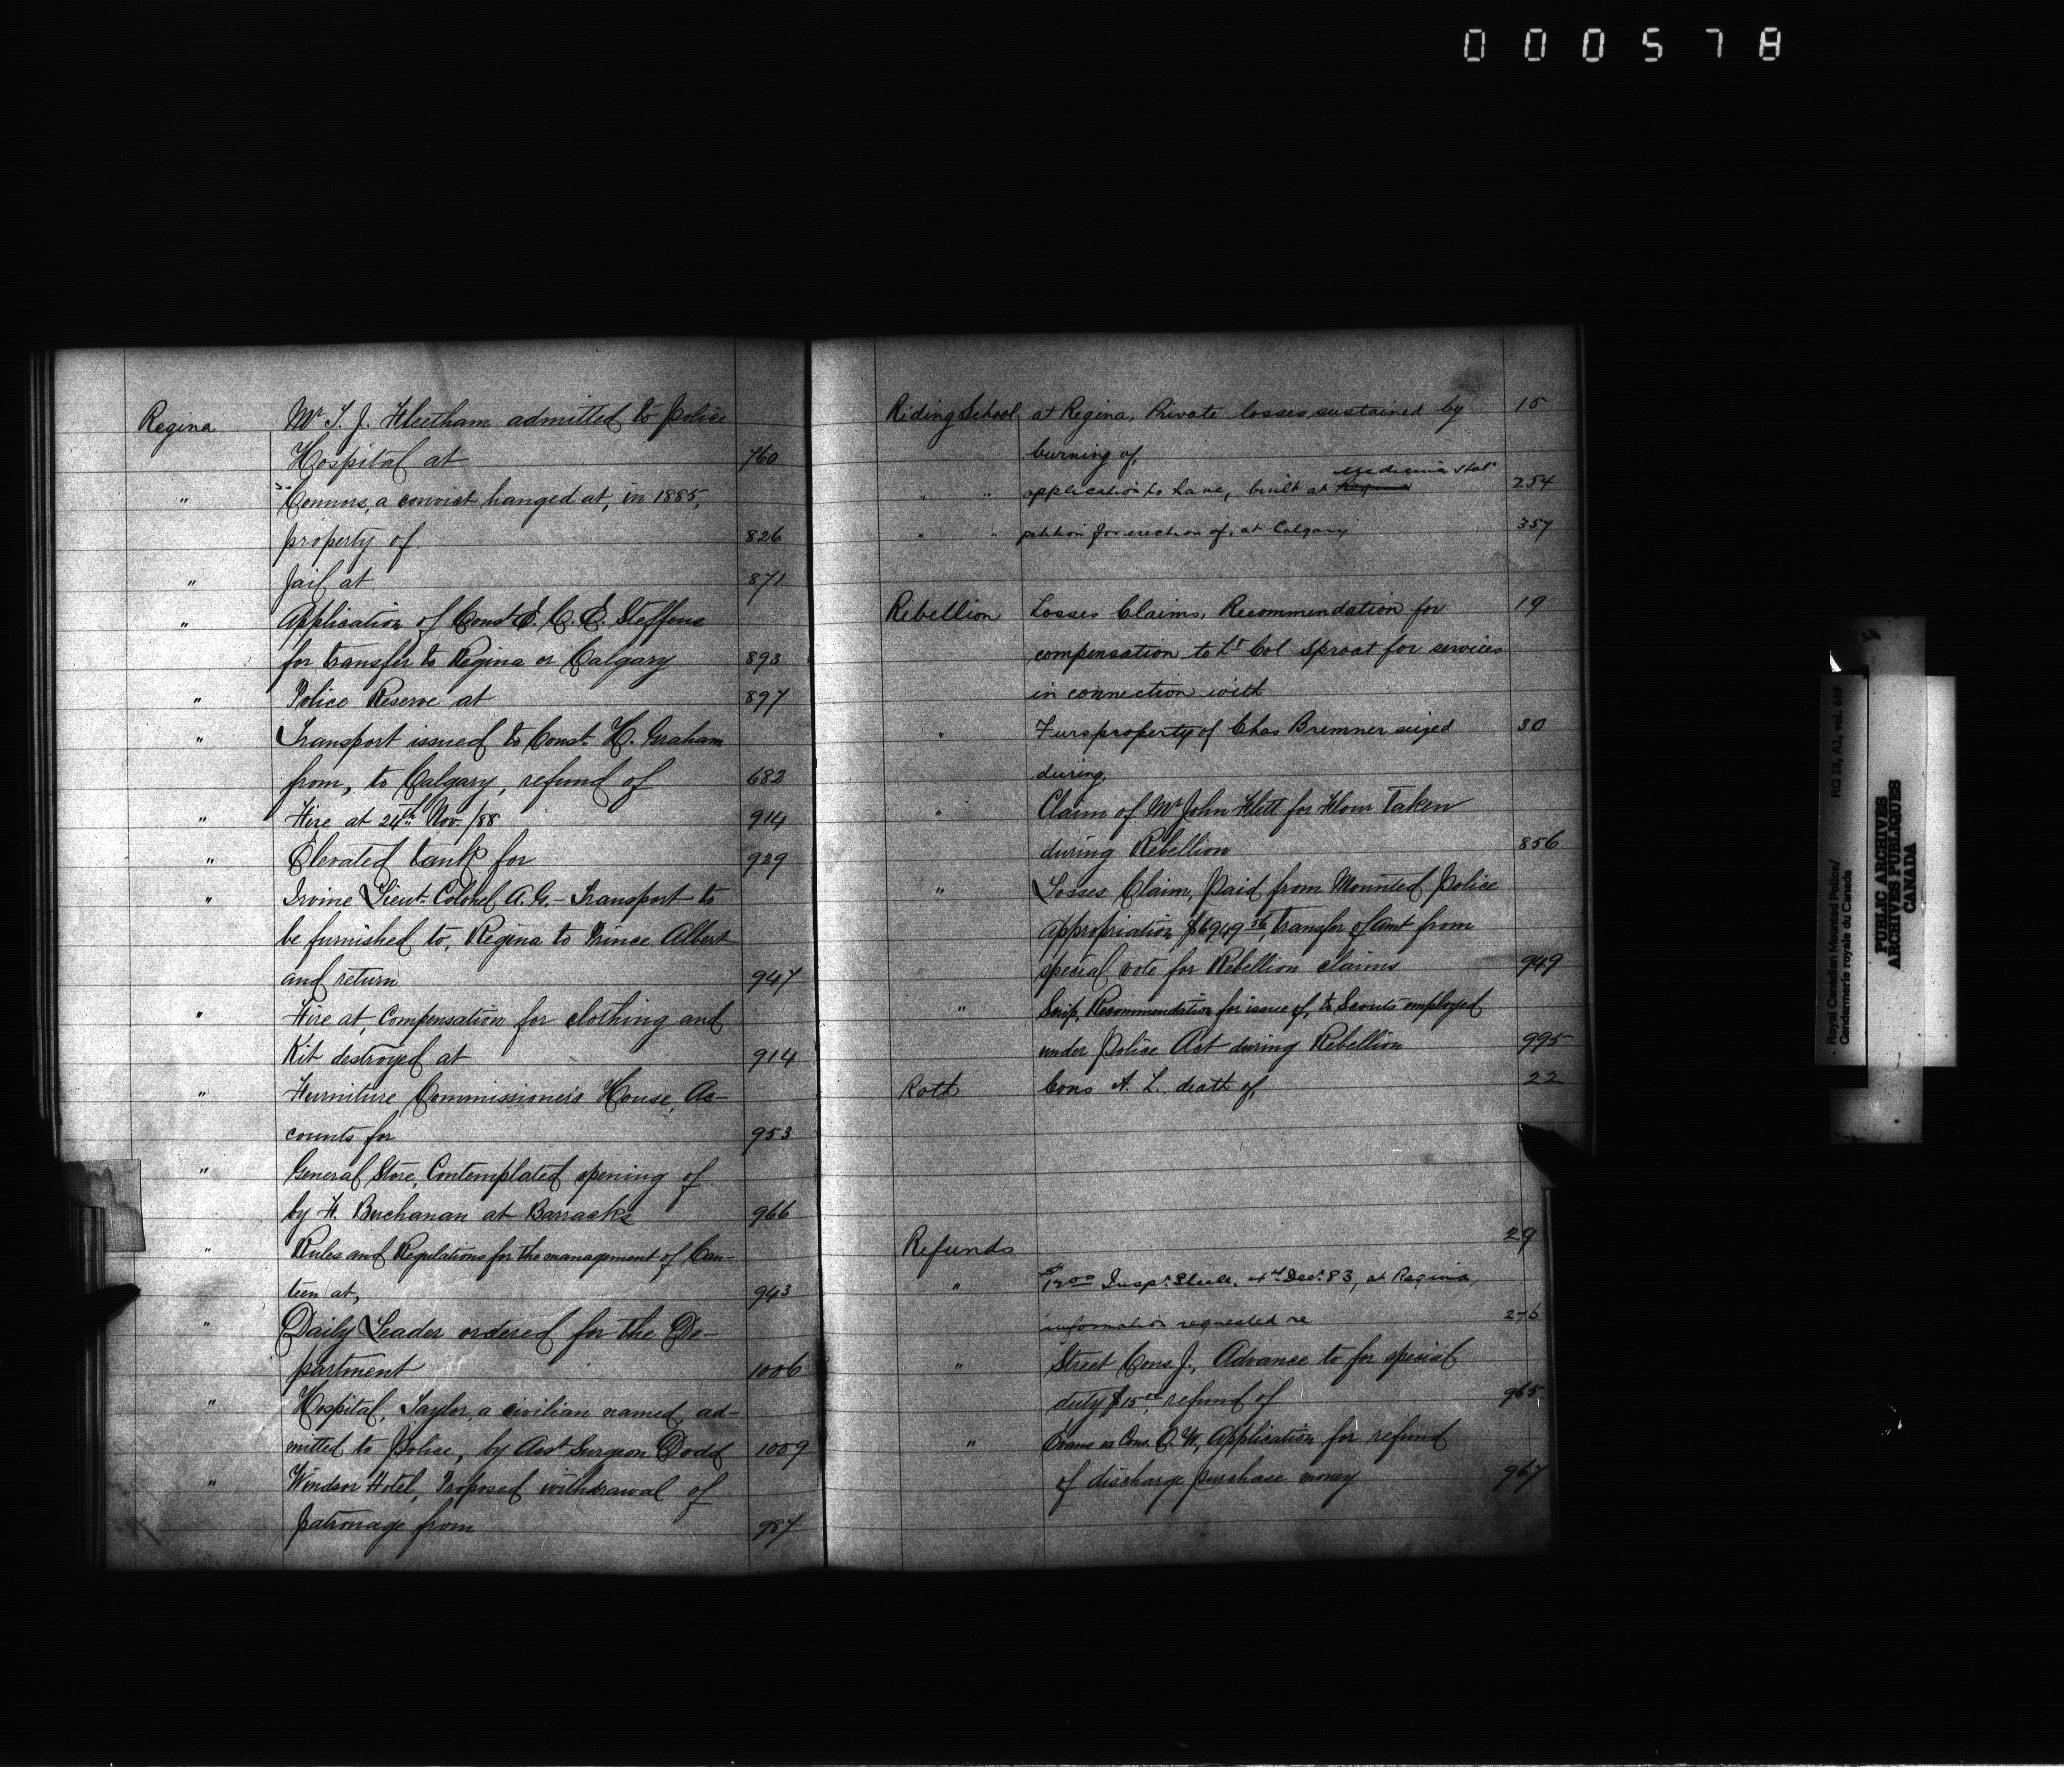 000578
Regina Mr. T. J. Fleetham admitted to Police
Hospital at 760
" Connors, a convict hanged at, in 1885,
property of 826
" Jail at 871
" Application of Const E. C. E. Steffens
for transfer to Regina or Calgary 893
" Police Reserve at 897
" Transport issued to Const. H. Graham
from, to Calgary, refund of 682
" Fire at 24th Nov. /88 914
" Elevated tank for 929
" Irvine Lieut. Colonel A. G. - Transport to
be furnished to, Regina to Prince Albert
and return 947
" Fire at, Compensation for clothing and
Kit destroyed at 914
" Furniture Commissioner's House, Ac-
counts for 953
" General Store, Contemplated opening of
by F. Buchanan at Barracks 966
" Rules and Regulations for the management of Can-
teen at, 943
" Daily Leader ordered for the De-
partment 1006
" Hospital, Taylor, a civilian named, ad-
mitted to Police, by Asst Surgeon Dodd 1009
" Windsor Hotel, Proposed withdrawal of
patronage from 987
Riding School at Regina, Private losses sustained by 15
burning of,
Medicine Hat
" " application to have, built at Regina 254
" " petition for erection of, at Calgary 357
Rebellion Losses Claims, Recommendation for 19
compensation to Lt Col Sproat for services
in connection with
" Furs property of Chas Bremner seized 30
during,
" Claim of Mr John Flett for Flour taken
during Rebellion 856
" Losses Claim, Paid from Mounted Police
Appropriation, $6949.36, transfer of amt from
special vote for Rebellion claims 949
" Scrip, Recommendation for issue of, to Scouts employed
under Police Act during Rebellion 995
Roth Cons A. L. death of, 22
Refunds 29
" $12.00 Inspr. Steele, 4th Decr. 83, at Regina,
information requested re 276
" Street Cons. J., Advance to for special
duty $15.00, refund of 965
" Evans ex Cons. C. W., Application for refund
of discharge purchase money 967
Royal Canadian Mounted Police/ RG 18, A1, vol. 649
Gendarmerie royale du Canada
PUBLIC ARCHIVES
ARCHIVES PUBLIQUES
CANADA